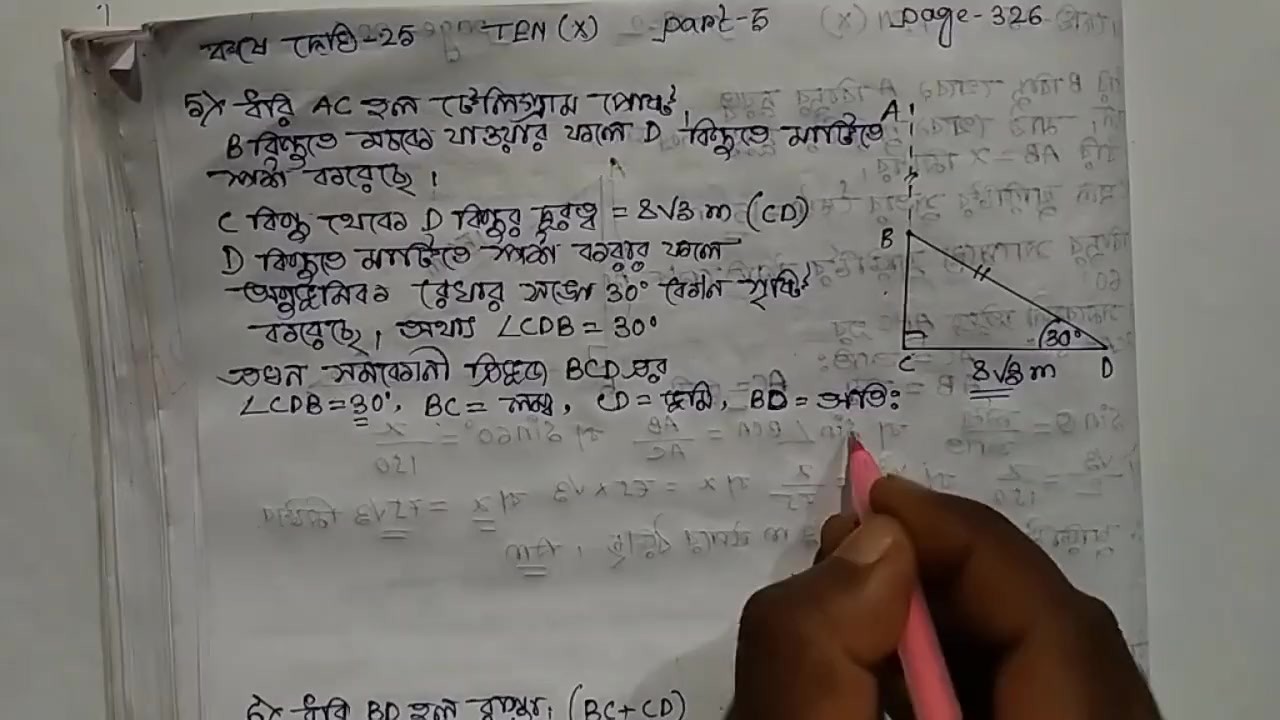 কষে দেখি-25 TEN (X) part-5 page-326
5) ধরি AC হল টেলিগ্রাম পোষ্ট,
B বিন্দুতে মচকে যাওয়ার ফলে D বিন্দুতে মাটিতে
স্পর্শ করেছে।
C বিন্দু থেকে D বিন্দুর দূরত্ব = 8√3 m (CD)
D বিন্দুতে মাটিতে স্পর্শ করার ফলে
অনুভূমিক রেখার সঙ্গে 30° কোন সৃষ্টি
করেছে, অর্থাৎ ∠CDB = 30°
এখন সমকোনী ত্রিভুজ BCD এর
∠CDB = 30°, BC = লম্ব, CD = ভূমি, BD = অতিঃ
A
B
30°
C 8√3 m D
6) ধরি BD হল বৃক্ষ, (BC+CD)